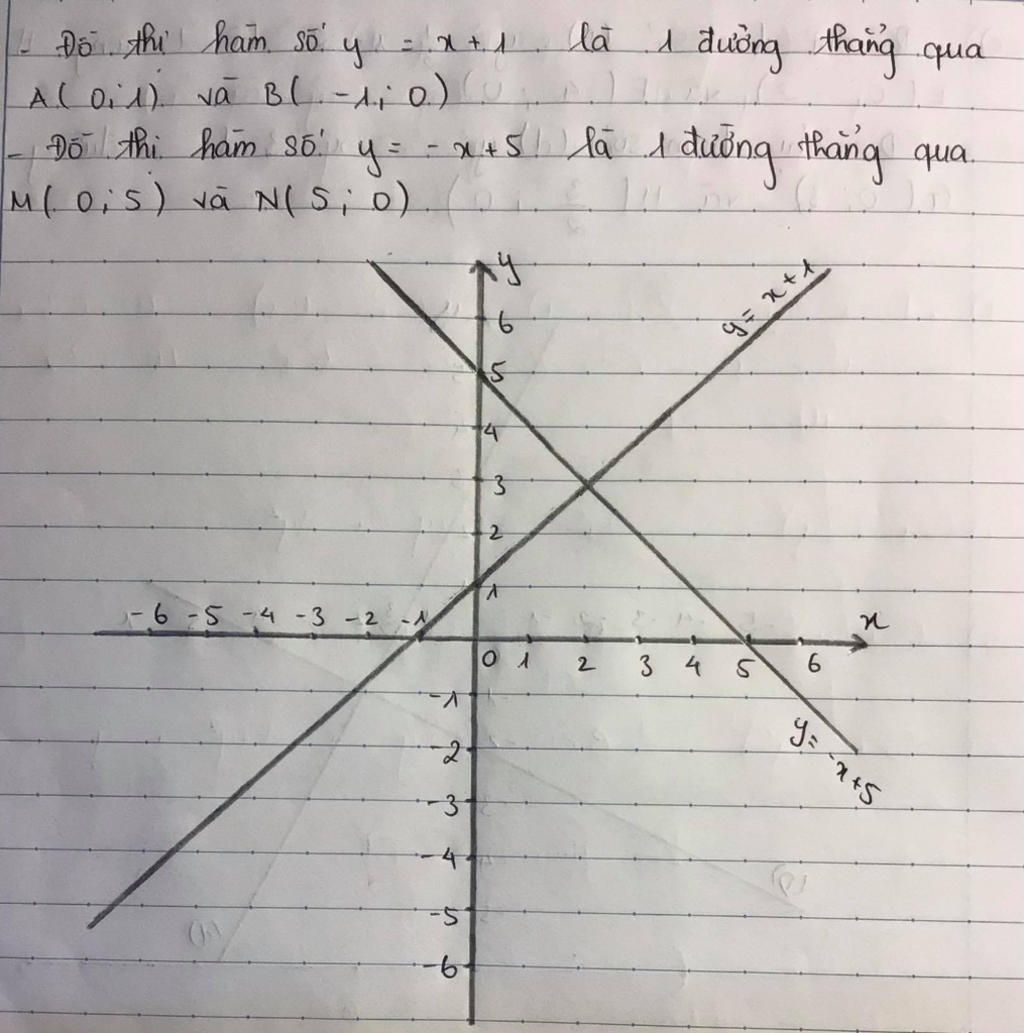 - Đồ thị hàm số y = x + 1 là 1 đường thẳng qua
A( 0; 1) và B( -1; 0)
- Đồ thị hàm số y = - x + 5 là 1 đường thẳng qua
M( 0; 5) và N( 5; 0)
y
y = x + 1
6
5
4
3
2
1
-6 -5 -4 -3 -2 -1
x
0 1 2 3 4 5 6
-1
y = -x + 5
-2
-3
-4
-5
-6